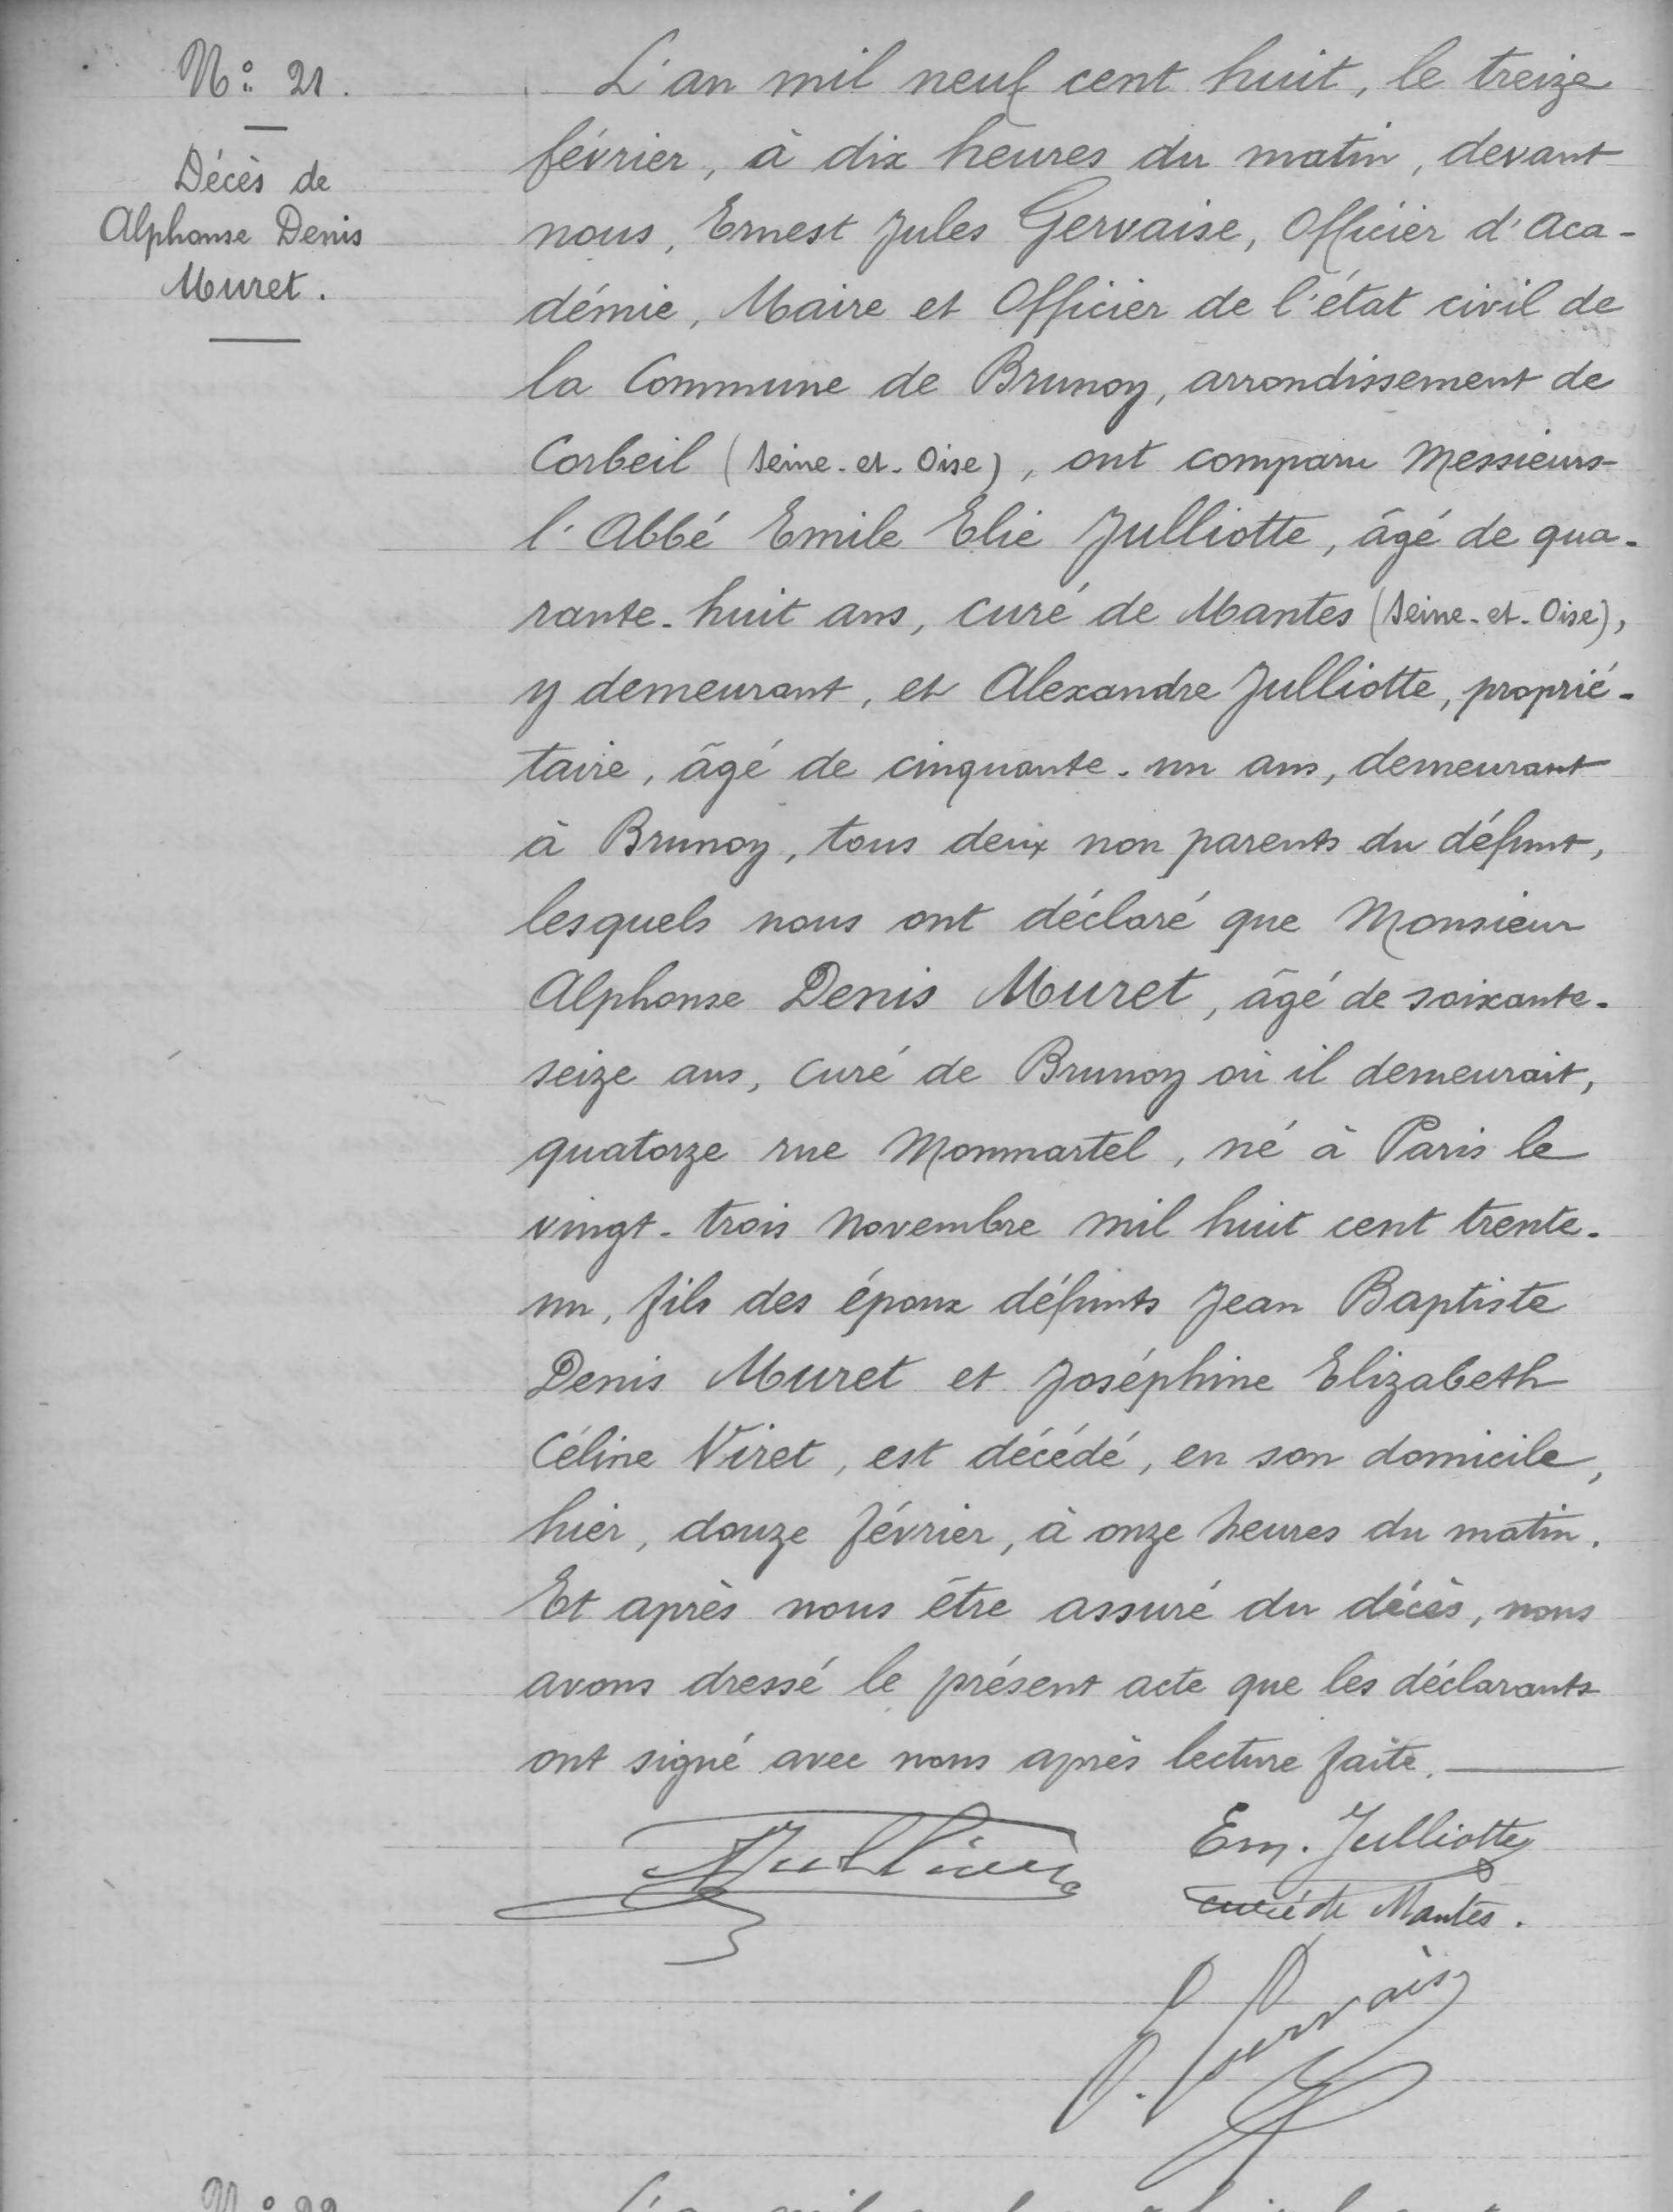 N° 21.
Décès de
Alphonse Denis
Muret.
L'an mil neuf cent huit, le treize
février, à dix heures du matin, devant
nous, Ernest Jules Gervaise, Officier d'Aca-
démie, Maire et Officier de l'état civil de
la Commune de Brunoy, arrondissement de
Corbeil (Seine-et-Oise), ont comparu Messieurs
l'Abbé Emile Elie Julliotte, âgé de qua-
rante-huit ans, curé de Mantes (Seine-et-Oise),
y demeurant, et Alexandre Julliotte, proprié-
taire, âgé de cinquante-un ans, demeurant
à Brunoy, tous deux non parents du défunt,
lesquels nous ont déclaré que Monsieur
Alphonse Denis Muret, âgé de soixante-
seize ans, curé de Brunoy où il demeurait,
quatorze rue Monmartel, né à Paris le
vingt-trois novembre mil huit cent trente-
un, fils des époux défunts Jean Baptiste
Denis Muret et Joséphine Elizabeth
Céline Viret, est décédé, en son domicile,
hier, douze février, à onze heures du matin.
Et après nous être assuré du décès, nous
avons dressé le présent acte que les déclarants
ont signé avec nous après lecture faite.
Em. Julliotte
curé de Mantes.
N° 22